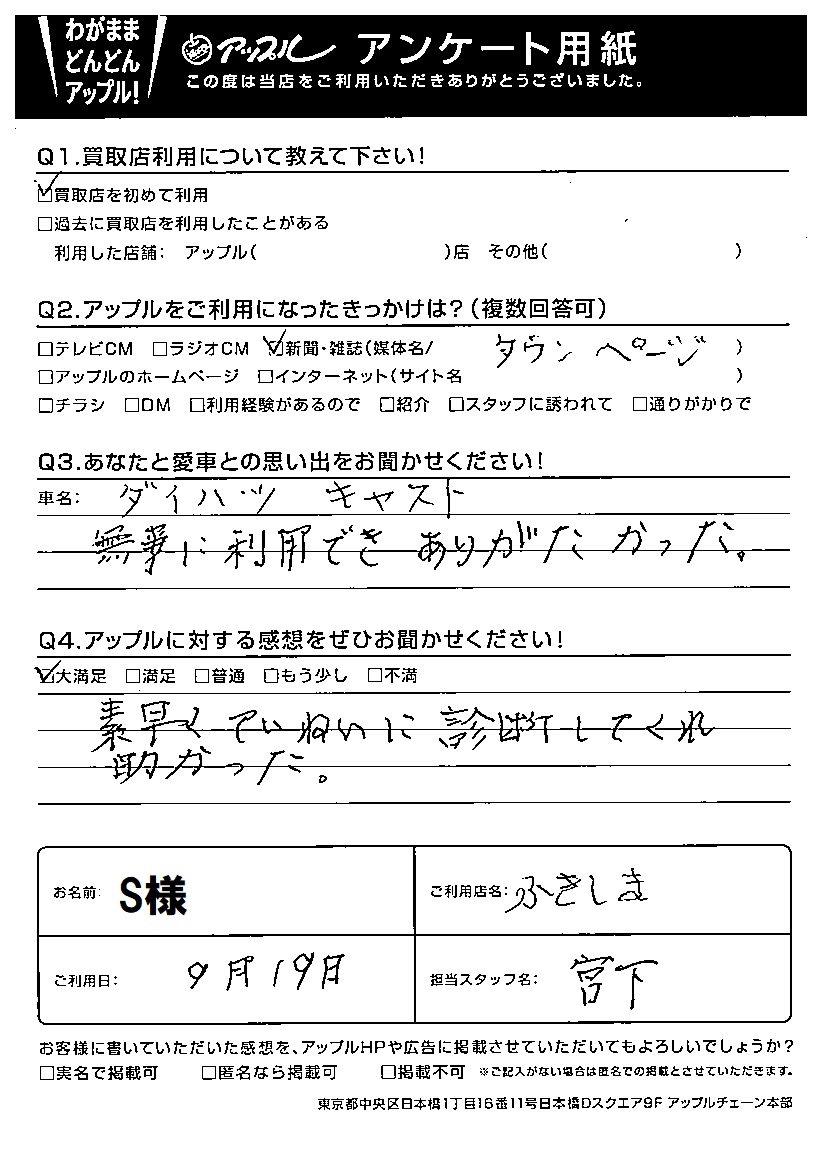 わがまま
どんどん
アップル!
アップル アンケート用紙
この度は当店をご利用いただきありがとうございました。
Q1.買取店利用について教えて下さい!
☑買取店を初めて利用
□過去に買取店を利用したことがある
利用した店舗: アップル( )店 その他( )
Q2.アップルをご利用になったきっかけは?(複数回答可)
□テレビCM □ラジオCM ☑新聞・雑誌(媒体名/ タウンページ )
□アップルのホームページ □インターネット(サイト名 )
□チラシ □DM □利用経験があるので □紹介 □スタッフに誘われて □通りがかりで
Q3.あなたと愛車との思い出をお聞かせください!
車名: ダイハツ キャスト
無事に利用でき ありがたかった。
Q4.アップルに対する感想をぜひお聞かせください!
☑大満足 □満足 □普通 □もう少し □不満
素早く ていねいに 診断してくれ
助かった。
お名前: S様
ご利用店名: ふきしま
ご利用日: 9月19日
担当スタッフ名: 宮下
お客様に書いていただいた感想を、アップルHPや広告に掲載させていただいてもよろしいでしょうか?
□実名で掲載可 □匿名なら掲載可 □掲載不可 ※ご記入がない場合は匿名での掲載とさせていただきます。
東京都中央区日本橋1丁目16番11号日本橋Dスクエア9F アップルチェーン本部